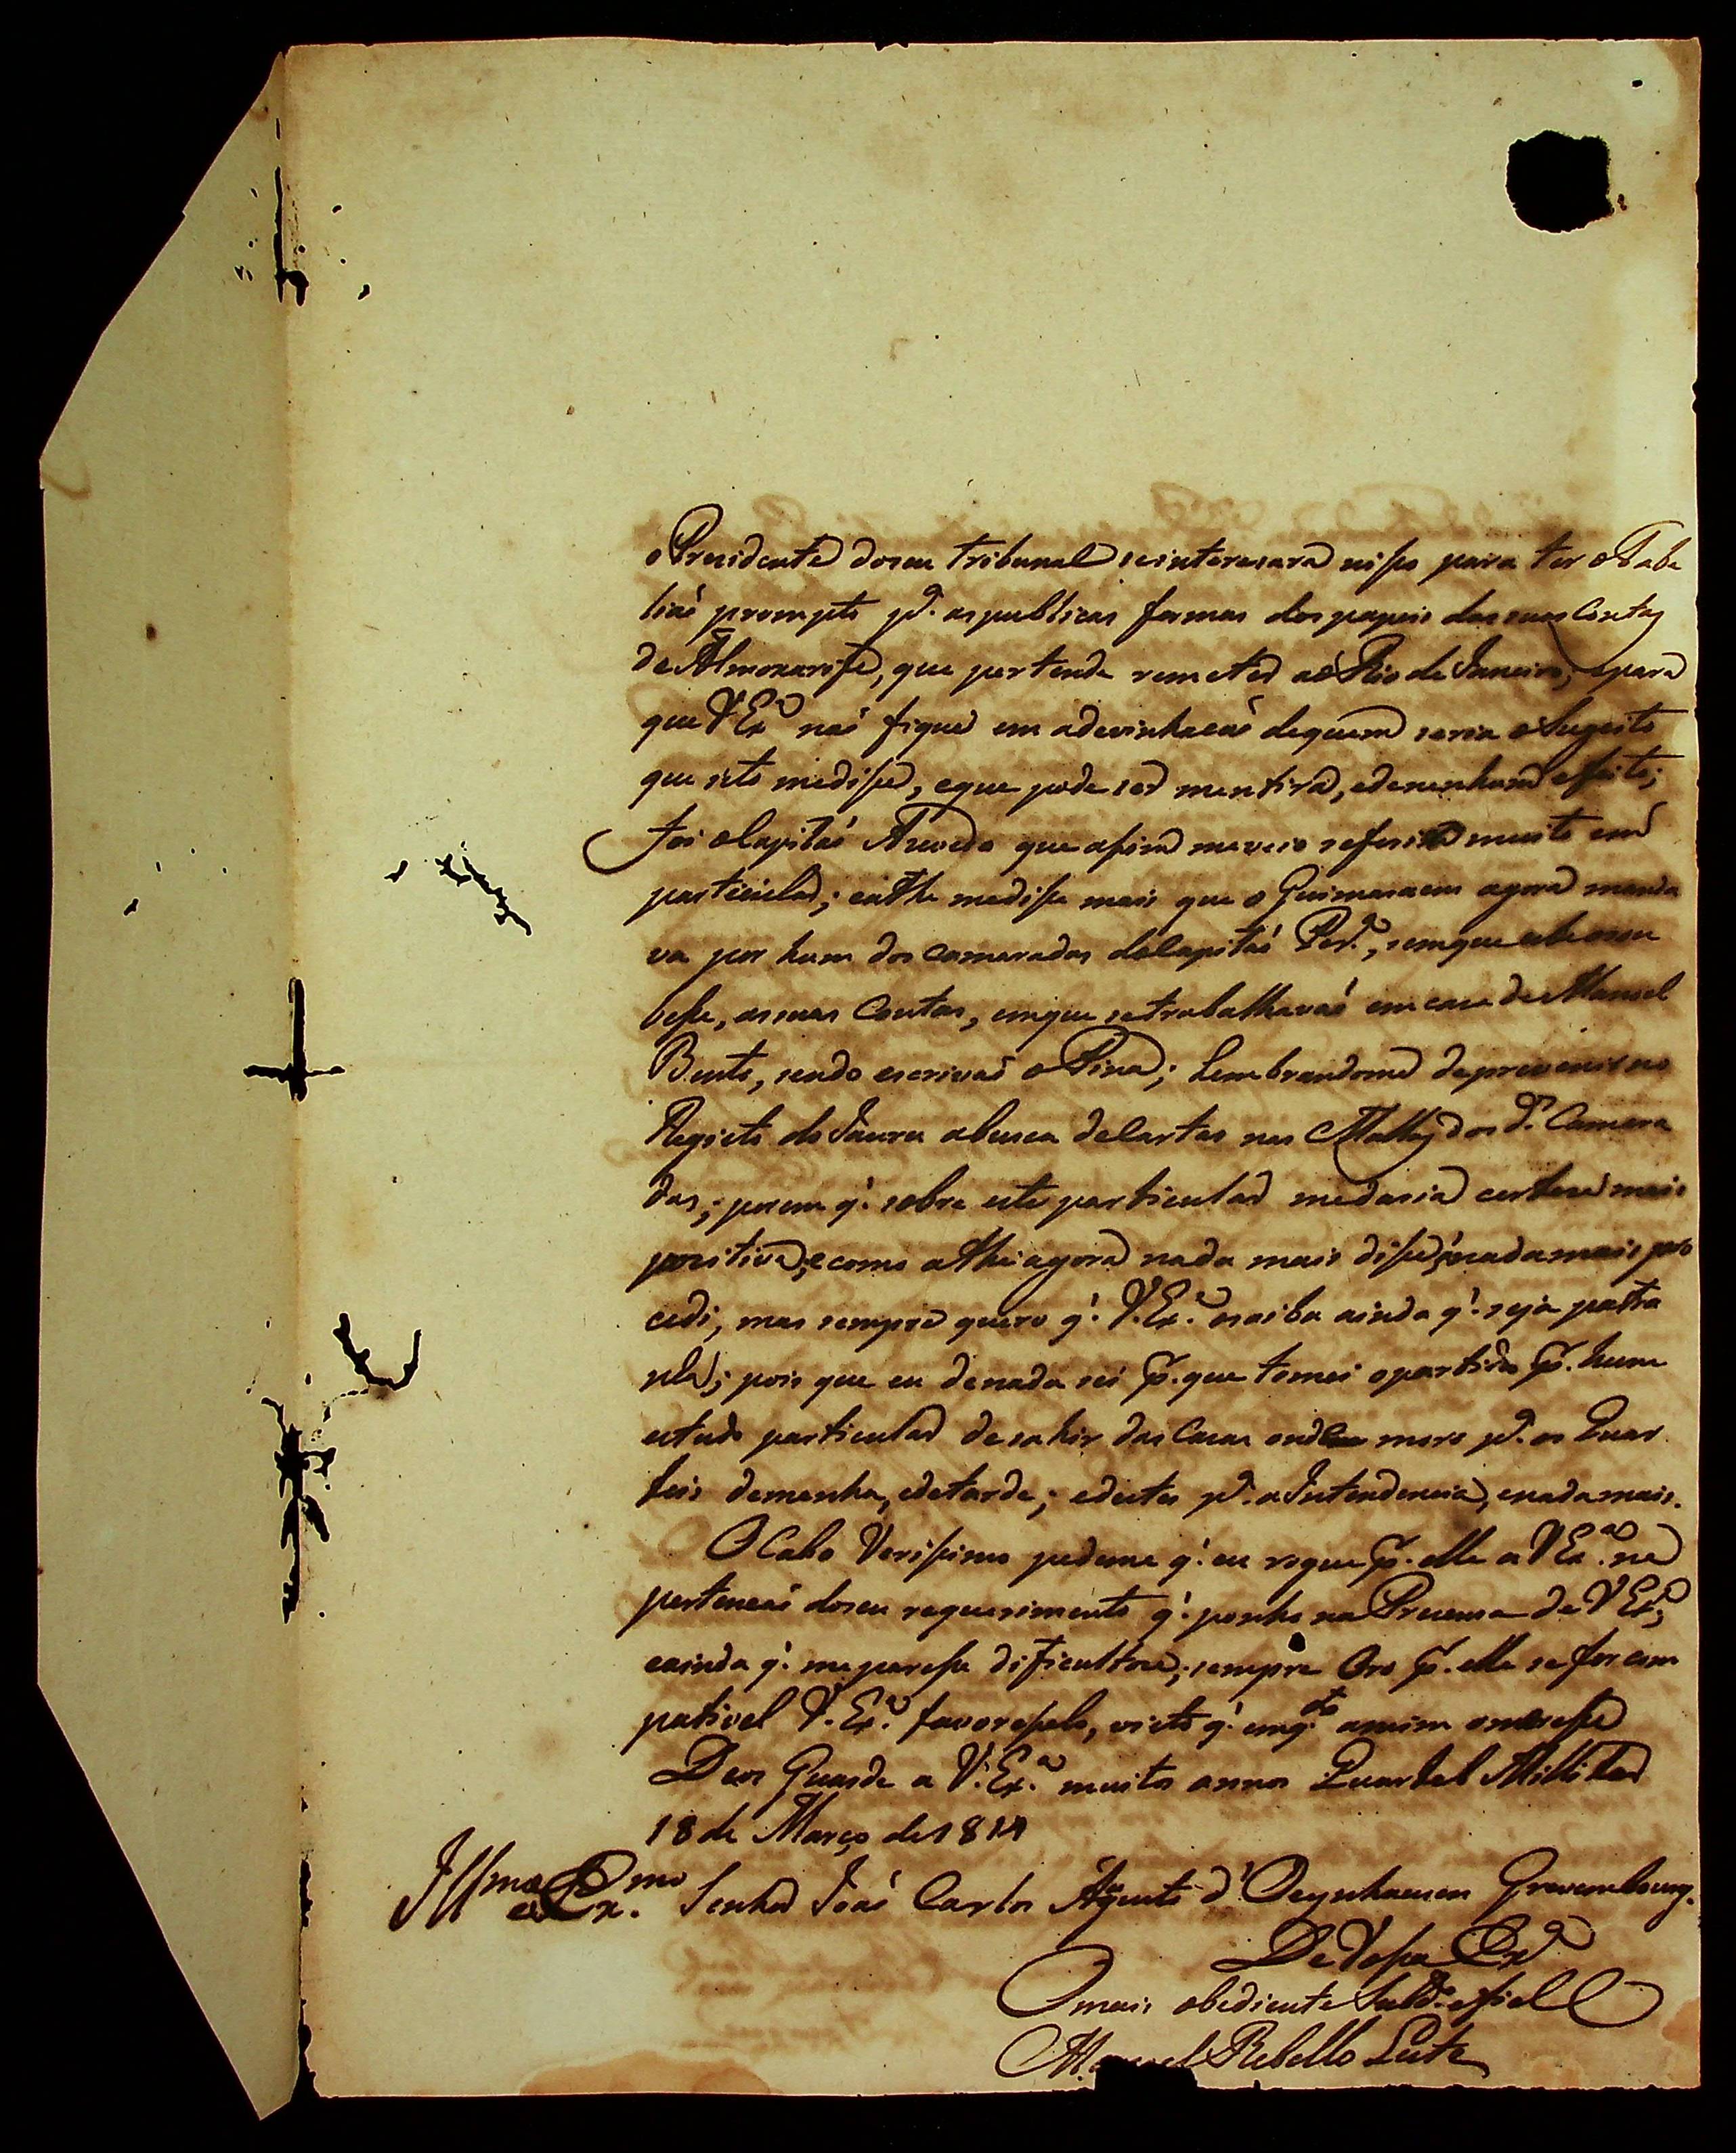 o Prezidente doseu tribunal seinteresara nisso para ter o Tabe
liaõ prompto pª. as publicas formas dos papeis das suas Contas
de Almoxarife, que pertende remeter ao Rio de Janeiro; e para
que V Exª naõ fique em adevinhacaõ dequem seria o Sugeito
que isto medisse, eque pode ser mentira, edenenhum effeito;
foi o Capitaõ Azevedo que assim meveio referir muito em
particular; eathe medisse mais que o Guimaraens agora manda
va por hum dos Camaradas do Capitaõ Perª,, semque
besse, assuas Contas, emque setrabalhavaõ em casa de Manoel
Bento, sendo escrivaõ o Pina; Lembrandome deprevenir no
Registo do Jauru abusca de Cartas nas Mallas dos dº. Camara
das; porem q̃. sobre este particular medaria certeza mais
pozitiva; ecomo athe agora nada mais disse, nada mais pro
cedi, mas sempre quero q̃. V. Exª. osaiba ainda q̃. seja patra
nha; pois que eu denada sei p. que tomei opartido p. hum
estudo particular de sahir das Casas onde moro pª. os Quar
teis demanha, edetarde; edestes pª. a Intendencia, enadamais.
O Cabo Verissimo pedeme q̃. eu rogue p. elle a V Exª. na
pertencaõ doseu requerimento q̃. ponho na Prezença de V Exª;
eainda q̃. mepareça dificultoza; sempre Oro p. elle se for com
pativel V. Exª. favorecelo, visto q̃. emq.to amim omerece
Deos Guarde a V. Exª. muitos annos Quartel Millitar
18 de Março de 1814
Illmo e Exmo. Senhor Joaõ Carlos Agusto d'Oeynhausen Grevembourg.
De Vossa Exª
O mais obediente Subdº. e fiel C
Manoel Rebello Leite